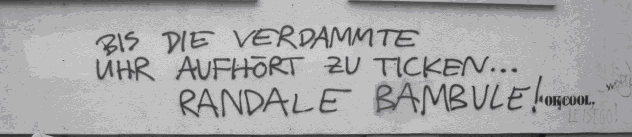 BIS DIE VERDAMMTE
UHR AUFHÖRT ZU TICKEN...
RANDALE BAMBULE!
OKCOOL.